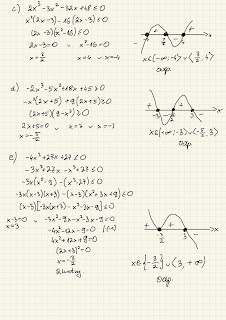 c) 2x³-3x²-32x+48≤0
x²(2x-3)-16(2x-3)≤0
(2x-3)(x²-16)≤0
2x-3=0 v x²-16=0
x=3/2 x=4 v x=-4
-4 3/2 4 x
x∈(-∞;-4>∪<3/2,4>
odp.
d) -2x³-5x²+18x+45≥0
-x²(2x+5)+9(2x+5)≥0
(2x+5)(9-x²)≥0
2x+5=0 v x=3 v x=-3
x=-5/2
x
odp.
e) -4x³+27x+27≤0
-3x³+27x-x³+27≤0
-3x(x²-9)-(x³-27)≤0
-3x(x-3)(x+3)-(x-3)(x²+3x+9)≤0
(x-3)[-3x(x+3)-x²-3x-9]≤0
x-3=0 v -3x²-9x-x²-3x-9=0
x=3 -4x²-12x-9=0 /·(-1)
4x²+12x+9=0
(2x+3)²=0
x=-3/2
-3/2 3 x
x∈{-3/2}∪<3,+∞)
odp.